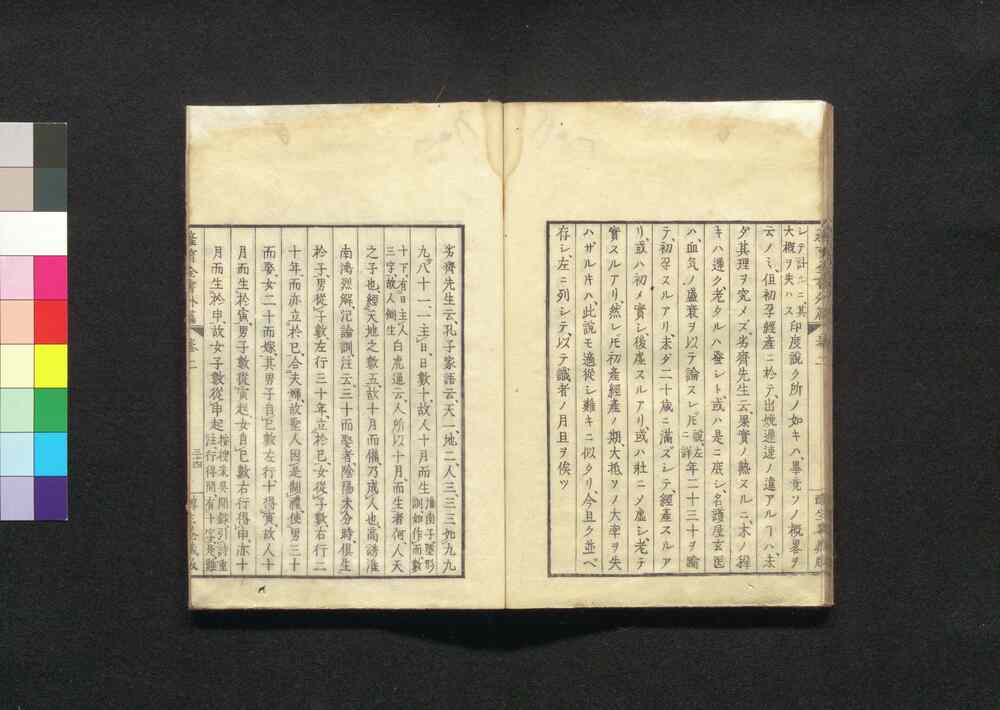 シテ計ルニ、其
大概ヲ失ハス
印度説ク所ノ如キハ、畢竟ソノ概畧ヲ
云ノミ、但初孕經産ニ於テ、出娩遲速ノ違アルヿハ、未
タ其理ヲ究メズ、劣齊先生云、果實ノ熟スルニ、木ノ穉
キハ遲ク老タルハ發シト、或ハ是ニ底シ、名護屋玄医
ハ、血気ノ盛衰ヲ以テ論スレドモ
説、左
ニ詳
年二十三十ヲ踰
テ、初孕スルアリ、未タ二十歳ニ滿ズシテ、經産スルア
リ、或ハ初メ實シ後虚スルアリ、或ハ壯ニメ虚シ、老テ
實スルアリ、然レドモ初産經産ノ期、大抵ソノ大率ヲ失
ハザルトキハ、此説モ適從シ難キニ似タリ、今且ク並ベ
存シ、左ニ列シテ、以テ識者ノ月旦ヲ俟ツ
劣齊先生云、孔子家語云、天一、地二、人三、三三如九、九
九八十一、一主日、日數十、故人十月而生
淮南子墬形
訓、如作而、數
十下、有日主人
三字、故人倒生
白虎通云、人所以十月而生者何、人天
之子也、經天地之數五、故十月而備、乃成人也、高誘淮
南鴻烈解、氾論訓注云、三十而娶者、陰陽未分時、倶生
於子、男從子數左行三十年、立於巳、女從子數右行二
十年、而亦立於巳、合夫婦、故聖人因是制禮、使男三十
而娶、女二十而嫁、其男子自巳數左行十得寅、故人十
月而生於寅、男子數從寅起、女自巳數右行得申、亦十
月而生於申、故女子數從申起
卷二
三十四